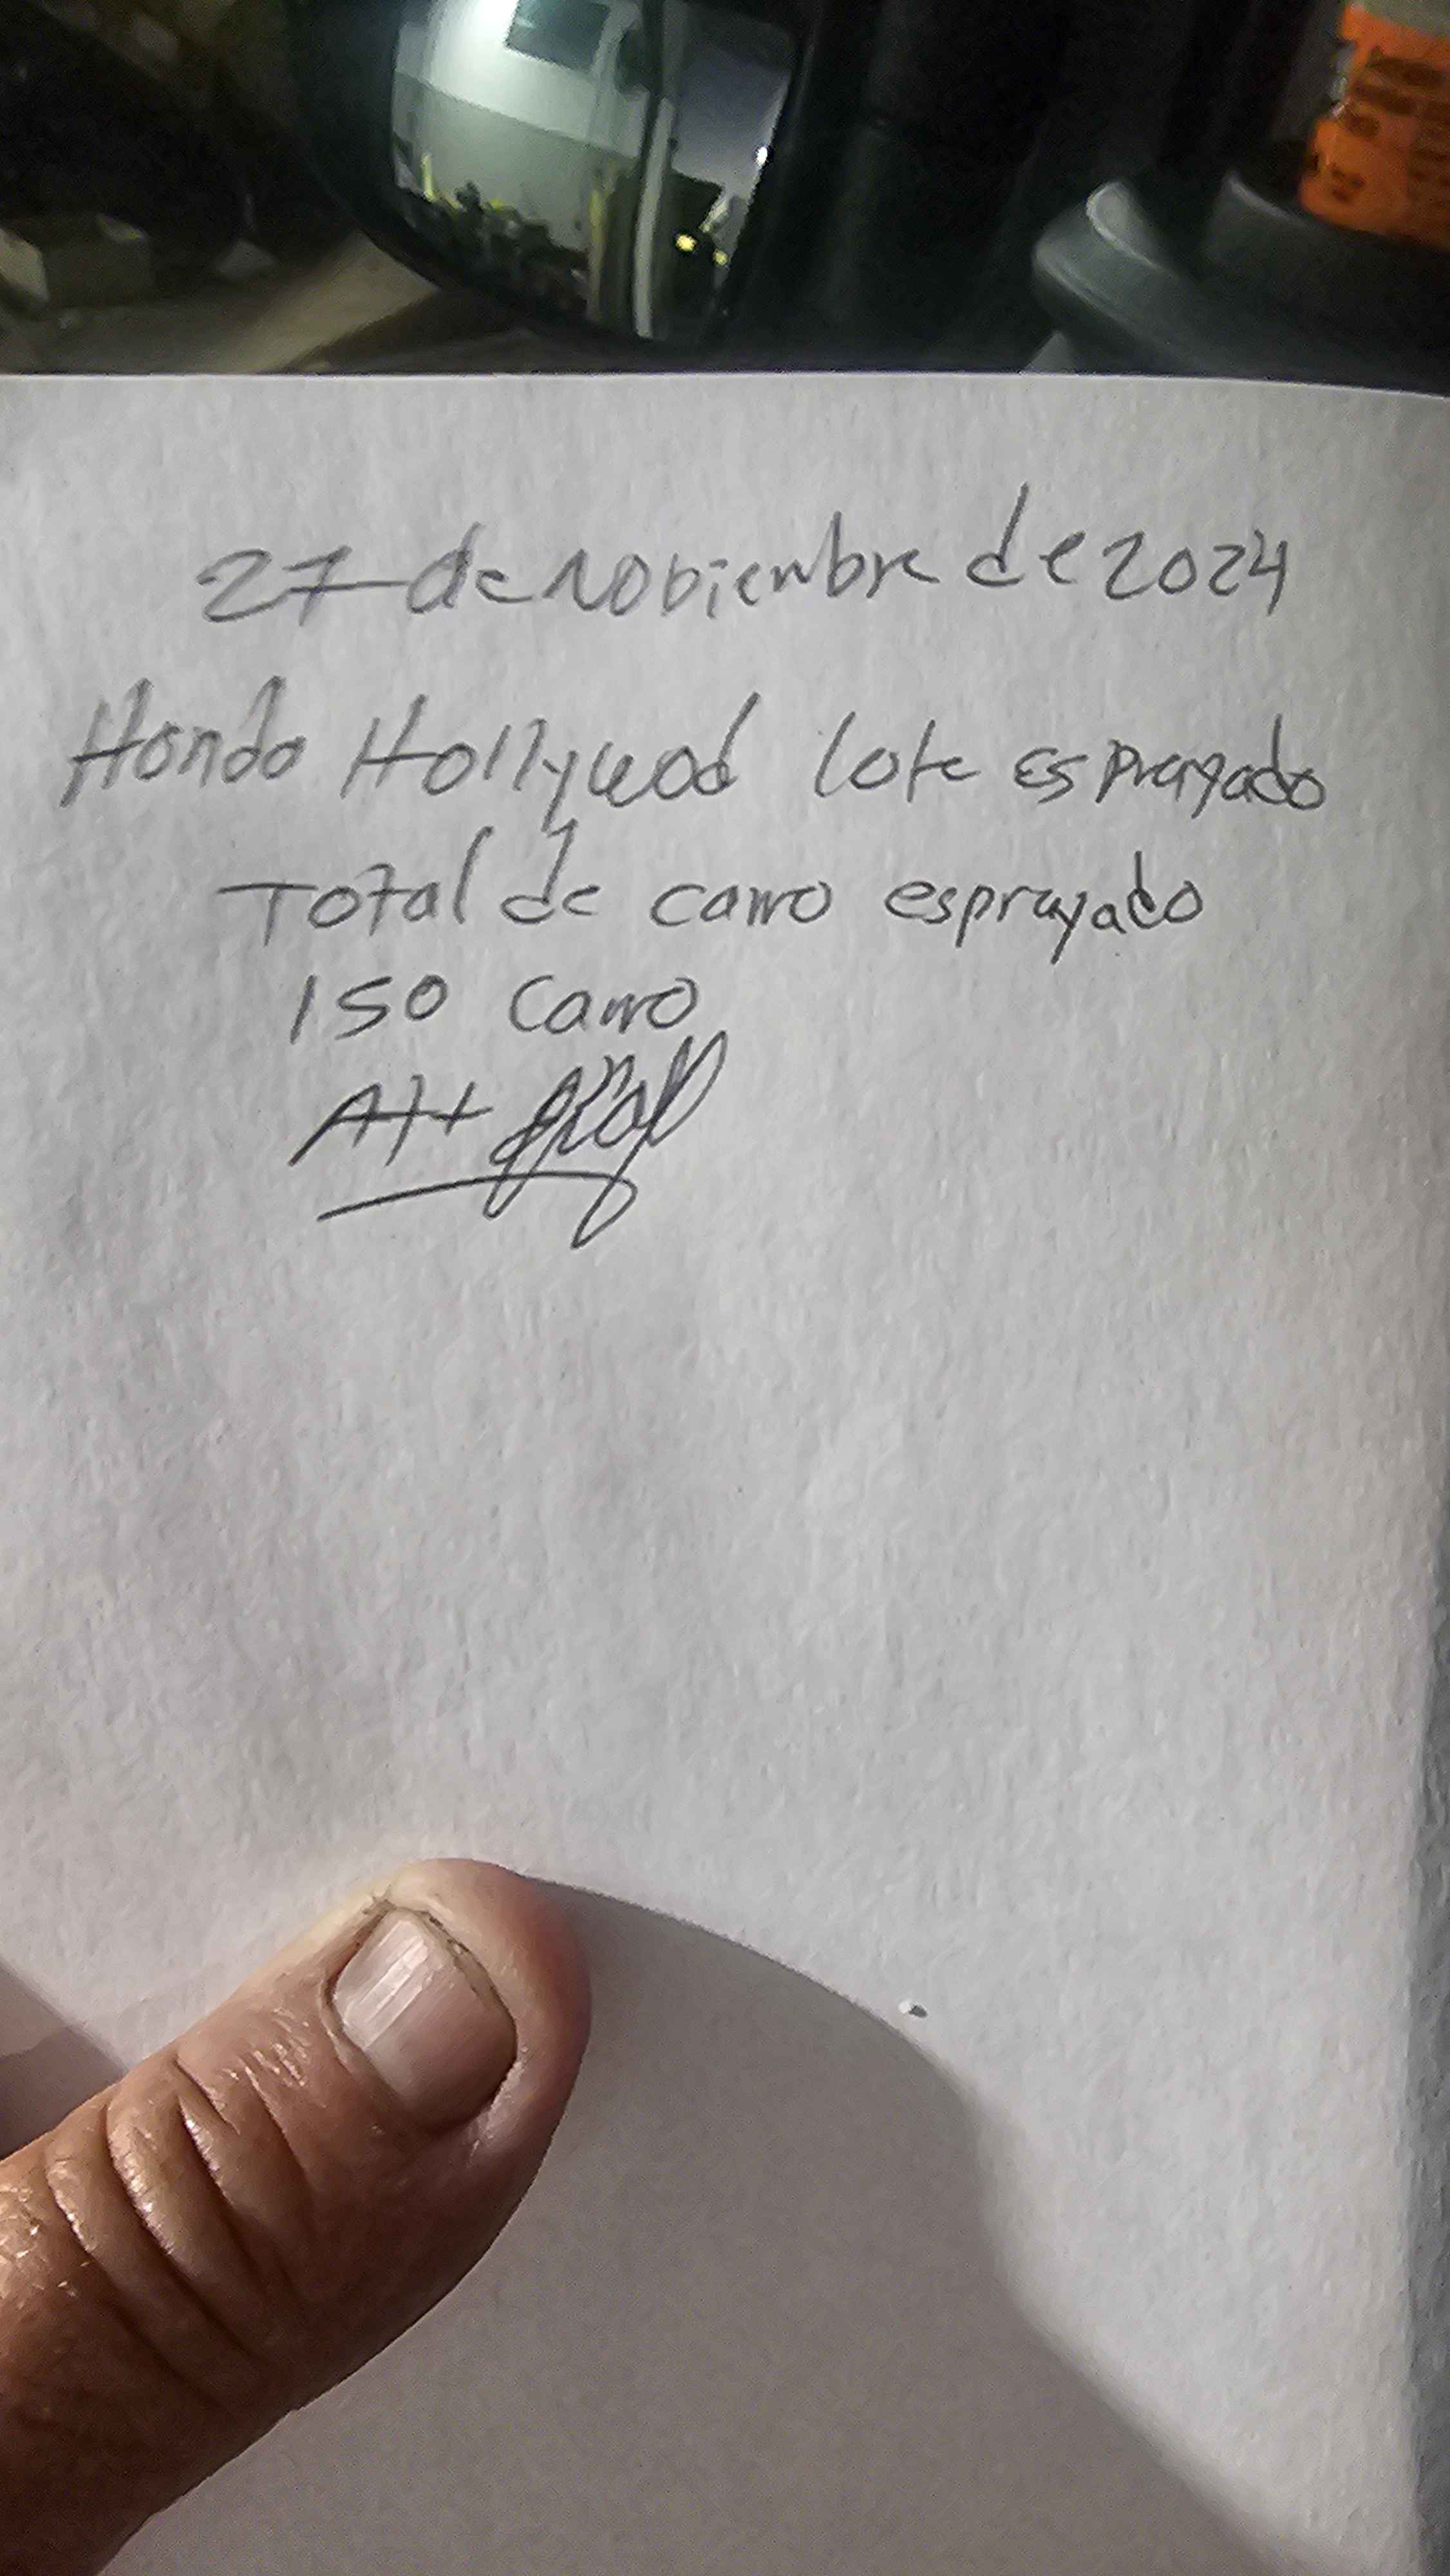 27 de Nobiembre de 2024
Hondo Hollywood lote esprayado
Total de carro esprayado
150 carro
Att